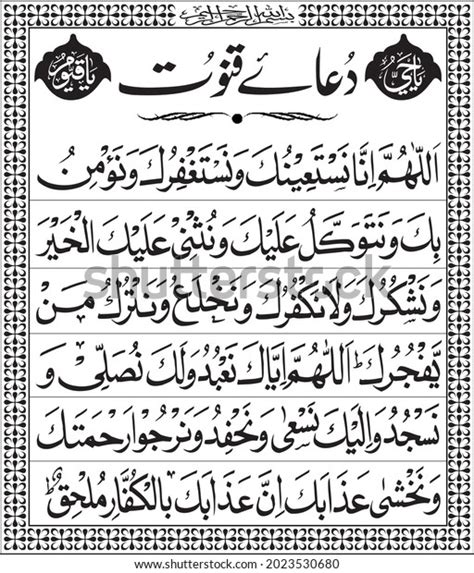 بسم الله الرحمن الرحيم
یا حیُّ
دُعائے قنوُت
یا قیّوم
اَللّٰهُمَّ اِنَّا نَسْتَعِيْنُكَ وَنَسْتَغْفِرُكَ وَنُؤْمِنُ
بِكَ وَنَتَوَكَّلُ عَلَيْكَ وَنُثْنِىْ عَلَيْكَ الْخَيْرَ
وَنَشْكُرُكَ وَلَا نَكْفُرُكَ وَنَخْلَعُ وَنَتْرُكُ مَنْ
يَّفْجُرُكَ ؕ اَللّٰهُمَّ اِيَّاكَ نَعْبُدُ وَلَكَ نُصَلِّىْ وَ
نَسْجُدُ وَاِلَيْكَ نَسْعٰى وَنَحْفِدُ وَنَرْجُوْا رَحْمَتَكَ
وَنَخْشٰى عَذَابَكَ اِنَّ عَذَابَكَ بِالْكُفَّارِ مُلْحِقٌ ؕ
shutterstock
shutterstock.com · 2023530680